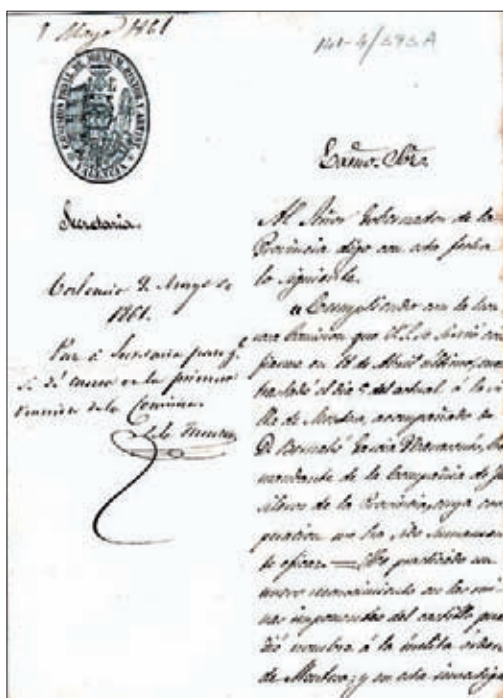 Mayo 1861
COMISION PROVAL DE MONUM. HISTOR. Y ARTIST.
VALENCIA
Secretaria.
Mayo de
1861.
Pase á Secretaria para q.e
se dé cuenta en la primera
reunion de la Comision
Excmo. Sor.
Al Señor Gobernador de la
Provincia digo con esta fecha
lo siguiente.
"Cumpliendo con la hon
rosa Comision que V.S. se sirvió con
fiarme en 18 de Abril último, me
trasladé el dia 5 del actual á la vi
lla de Montesa, acompañado de
D. Bernabé Garcia Co
mandante de la Compañia de fu
sileros de la Provincia, cuya coo
peracion me ha sido sumamen
te eficaz. = He practicado un
nuevo reconocimiento en las rui
nas imponentes del castillo que
dió nombre á la ínclita órden
de Montesa; y en esta